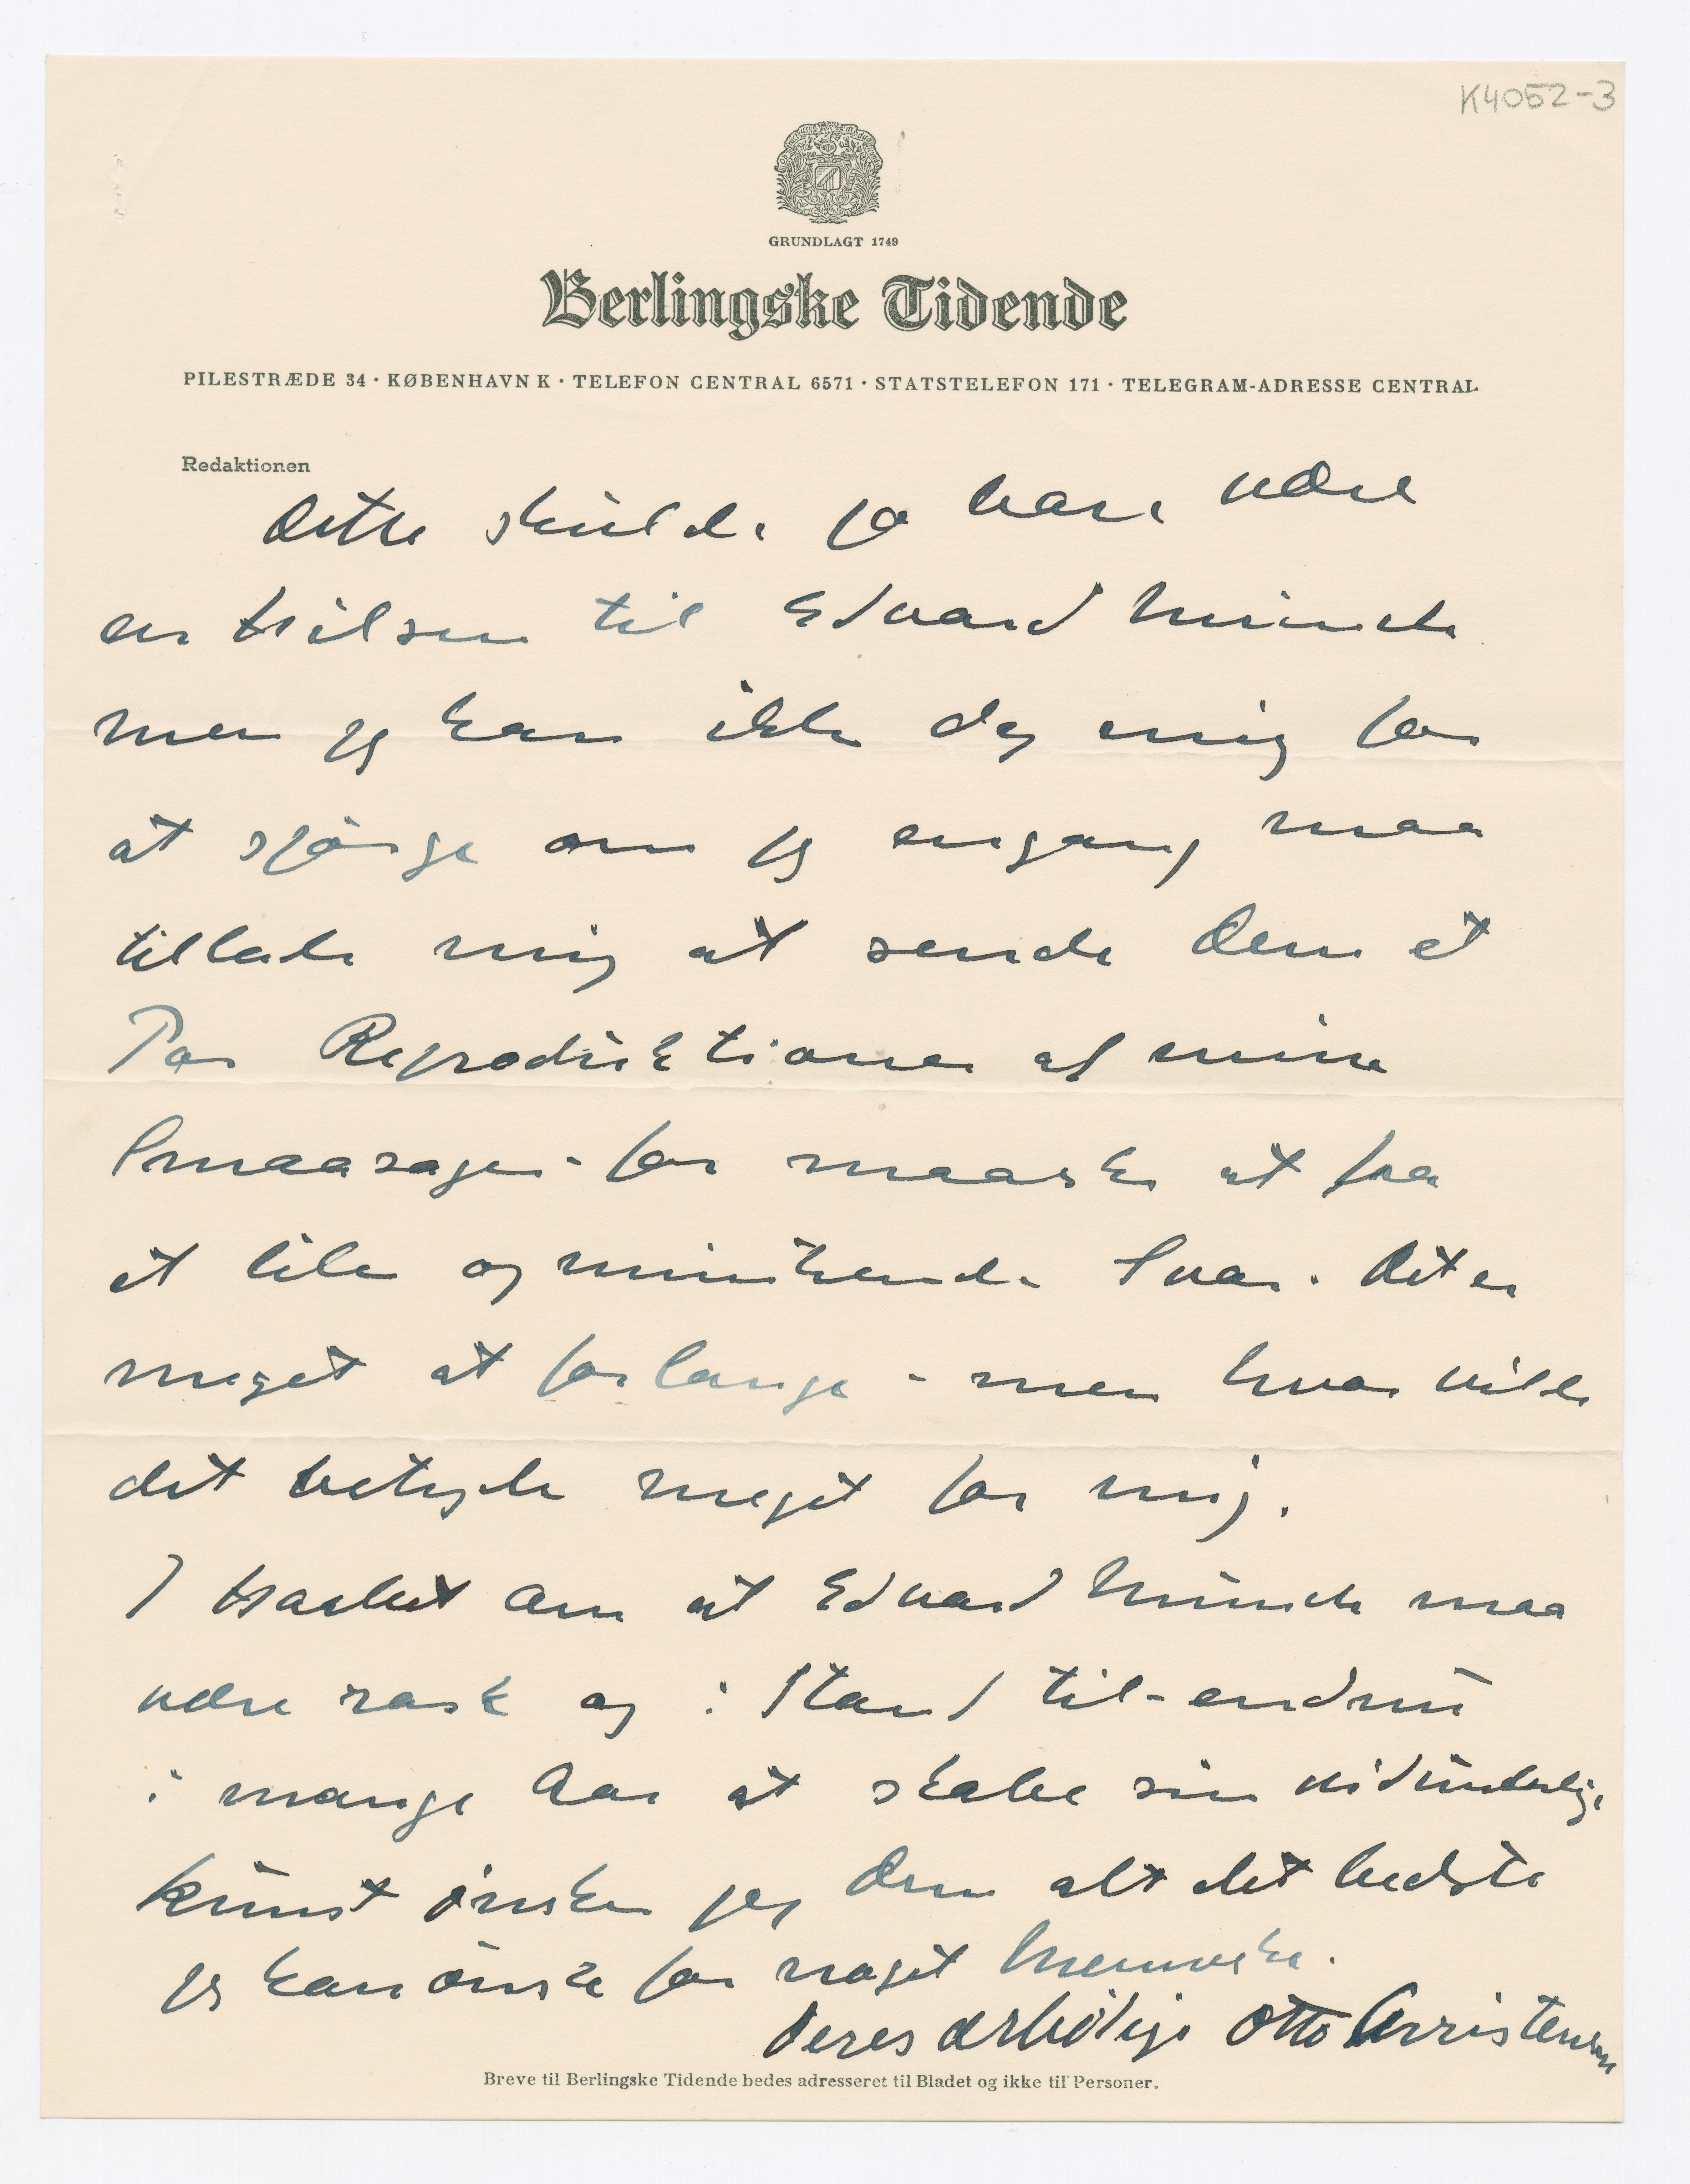 K4052-3
GRUNDLAGT 1749
Berlingske Tidende
PILESTRÆDE 34 · KØBENHAVN K · TELEFON CENTRAL 6571 · STATSTELEFON 171 · TELEGRAM-ADRESSE CENTRAL
Redaktionen
Dette skulde jo bare være
en Hilsen til Edvard Munch
men jeg kan ikke dy mig for
at spørge om jeg engang maa
tillade mig at sende Dem et
Par Reproduktioner af mine
Smaasager - for maaske at faa
et lille opmuntrende Svar. Det er
meget at forlange - men hvor vilde
det betyde meget for mig.
I Haabet om at Edvard Munch maa
være rask og i Stand til - endnu
i mange Aar at skabe sin vidunderlige
Kunst ønsker jeg Dem alt det bedste
jeg kan ønske for noget Menneske.
Deres ærbødige Otto Christensen
Breve til Berlingske Tidende bedes adresseret til Bladet og ikke til Personer.